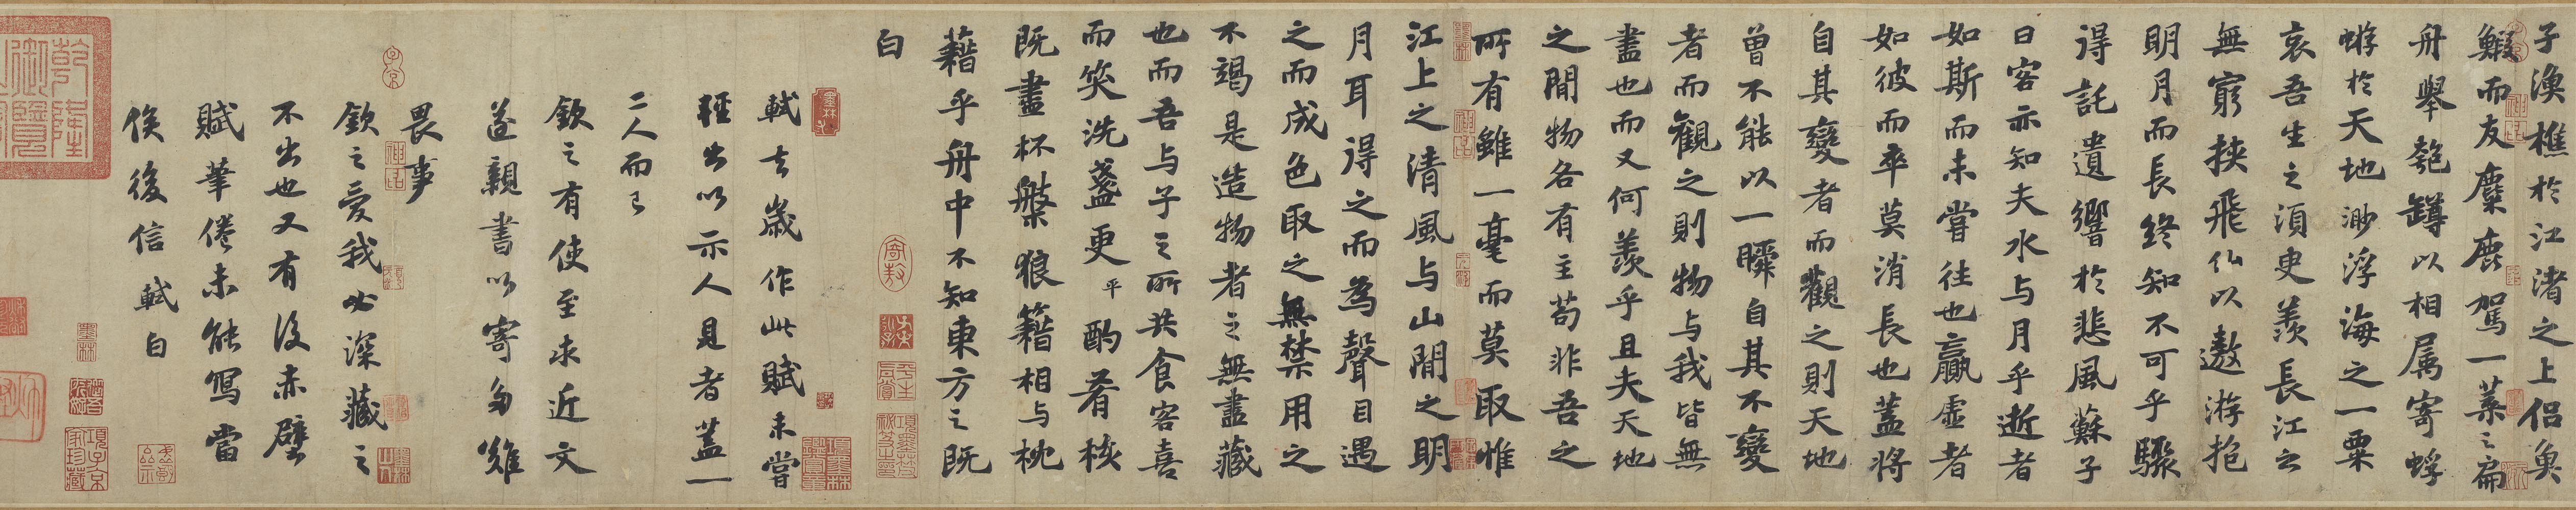 子漁樵於江渚之上侶魚
鰕而友麋鹿駕一葉之扁
舟舉匏罇以相属寄蜉
蝣於天地渺浮海之一粟
哀吾生之須臾羨長江之
無窮挾飛仙以遨游抱
明月而長終知不可乎驟
得託遺響於悲風蘇子
曰客亦知夫水与月乎逝者
如斯而未嘗往也贏虛者
如彼而卒莫消長也蓋將
自其變者而觀之則天地
曾不能以一瞬自其不變
者而觀之則物与我皆無
盡也而又何羨乎且夫天地
之間物各有主苟非吾之
所有雖一毫而莫取惟
江上之清風与山間之明
月耳得之而為聲目遇
之而成色取之無禁用之
不竭是造物者之無盡藏
也而吾与子之所共食客喜
而笑洗盞更平酌肴核
既盡杯槃狼籍相与枕
藉乎舟中不知東方之既
白
軾去歲作此賦未嘗
輕出以示人見者蓋一
二人而已
欽之有使至求近文
遂親書以寄多難
畏事
欽之愛我必深藏之
不出也又有後赤壁
賦筆倦未能寫當
俟後信軾白
子京
神品
墨林
寄敖
平生真賞
項墨林父祕笈之印
項子京家珍藏
乾隆御覽